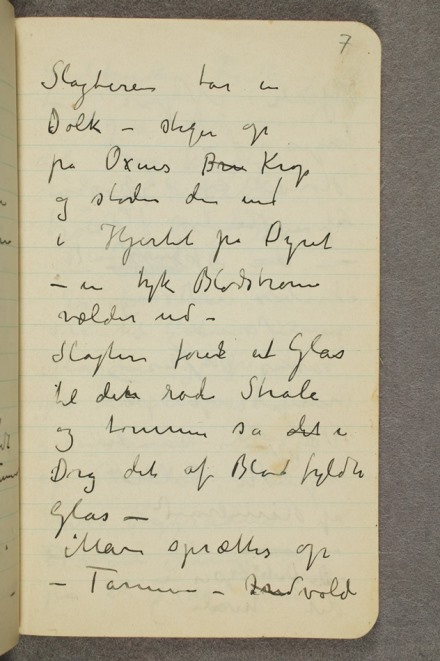 7
Slagteren tar en
Dolk – stiger op
på Oxens Krop
og støder den ind
i Hjertet på Dyret
– en tyk Blodstrøm
vælder ud –
Slagteren et Glas
til den røde Stråle
og tømmer så det i
Drag det af Blod fyldte
Glas –
Maven sprættes op
– Tarmene – Indvold